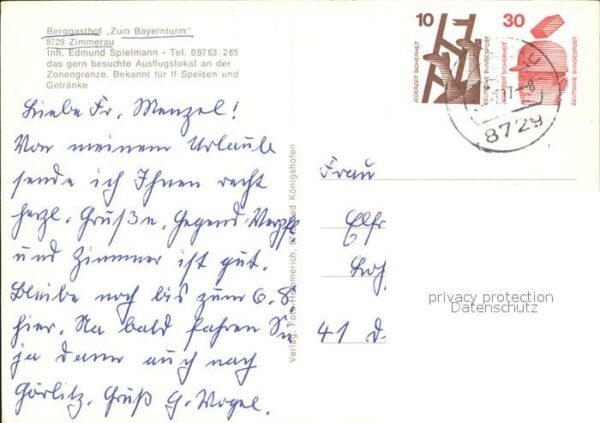 Berggasthof „Zum Bayernturm"
8729 Zimmerau
Inh. Edmund Spielmann - Tel. 09763/265
das gern besuchte Ausflugslokal an der
Zonengrenze. Bekannt für ff Speisen und
Getränke
Liebe Fr. Menzel!
Von meinem Urlaube
sende ich Ihnen recht
herzl. Grüße. Gegend Verpfl
und Zimmer ist gut.
Bleibe noch bis zum 6.8
hier. Na bald fahren Sie
ja dann auch nach
Görlitz. Gruß G. Vogel.
Königshofen
Verlag: Foto
10
JEDERZEIT SICHERHEIT
DEUTSCHE BUNDESPOST
30
JEDERZEIT SICHERHEIT
DEUTSCHE BUNDESPOST
8729
Frau
Elfr
41 d
privacy protection
Datenschutz